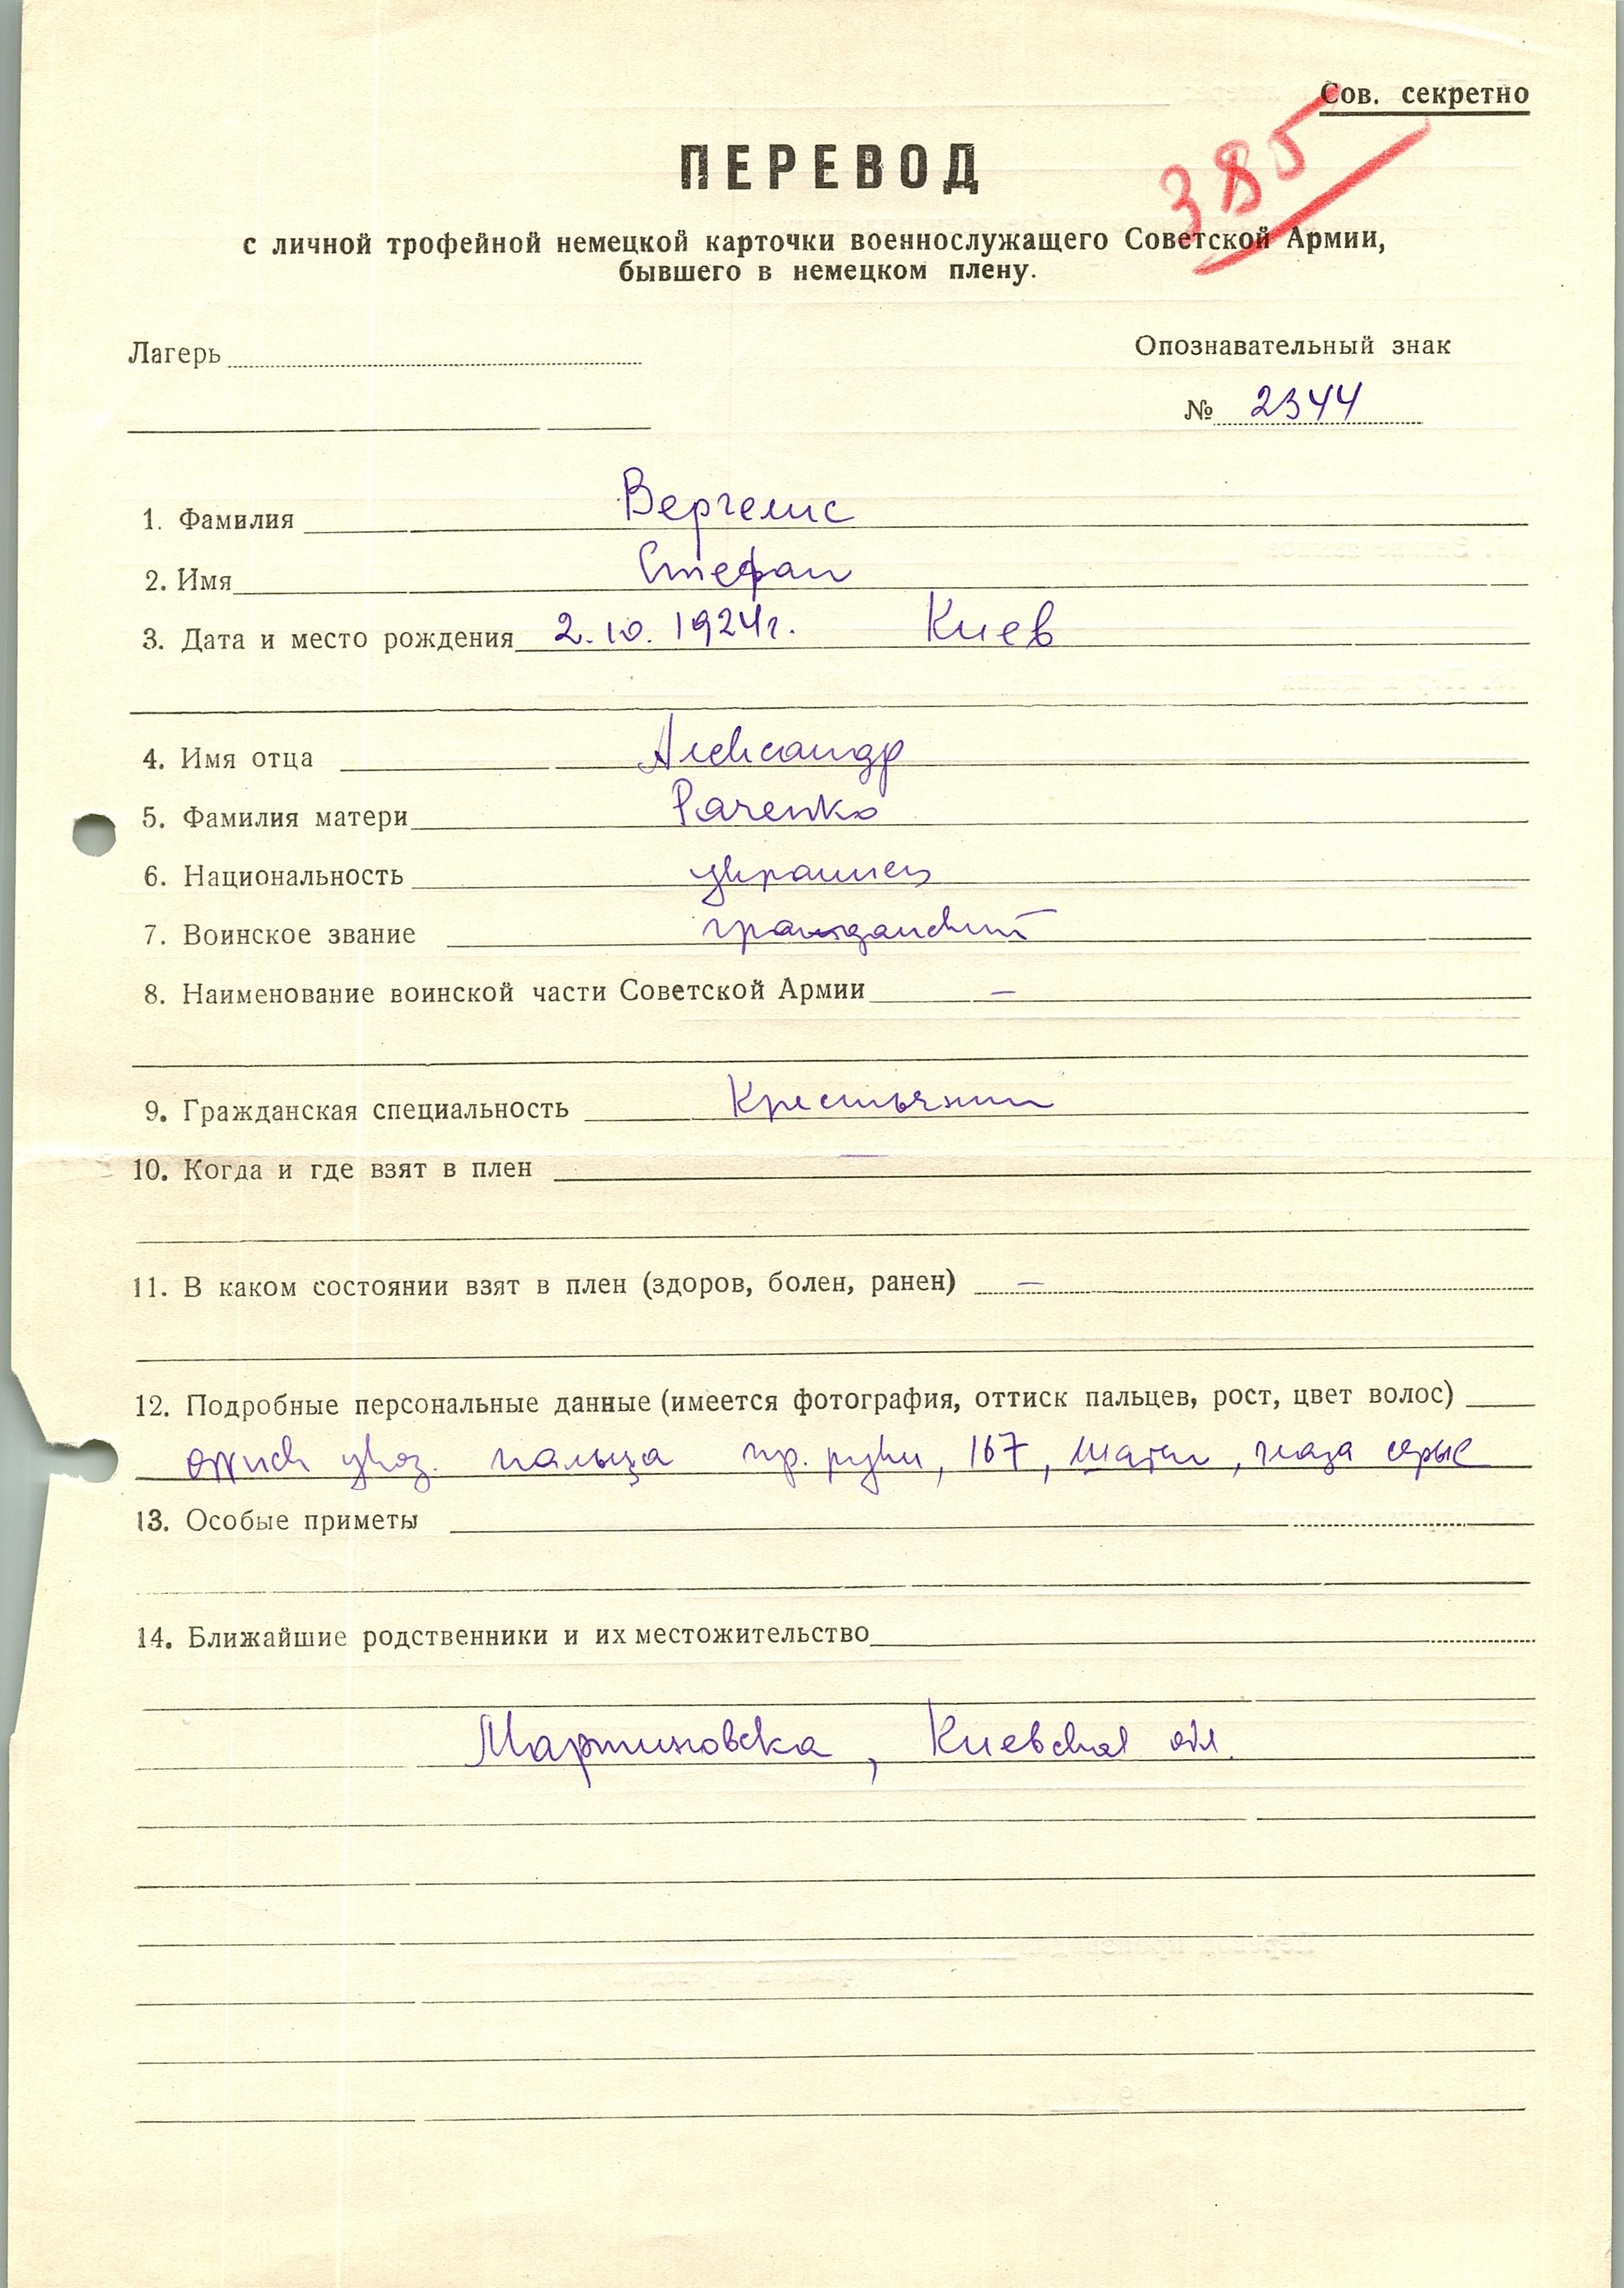 Сов. секретно
385
ПЕРЕВОД
с личной трофейной немецкой карточки военнослужащего Советской Армии,
бывшего в немецком плену.
Лагерь
Опознавательный знак
№ 2344
1. Фамилия Вергелис
2. Имя Стефан
3. Дата и место рождения 2.10.1924г. Киев
4. Имя отца Александр
5. Фамилия матери Раченко
6. Национальность украинец
7. Воинское звание гражданский
8. Наименование воинской части Советской Армии –
9. Гражданская специальность Крестьянин
10. Когда и где взят в плен –
11. В каком состоянии взят в плен (здоров, болен, ранен) –
12. Подробные персональные данные (имеется фотография, оттиск пальцев, рост, цвет волос)
оттиск указ. пальца пр. руки, 167, шатен, глаза серые
13. Особые приметы
14. Ближайшие родственники и их местожительство
Мартиновска, Киевская обл.